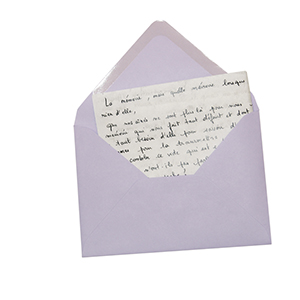 La mémoire, mais quelle mémoire lorsque
rien d'elle,
que nos aînés ne sont plus là pour nous
mémoire qui nous fait tant défaut et dont
tant besoin d'elle pour
pour la transmettre
combler ce vide, qui est
n'ont-ils pas fait